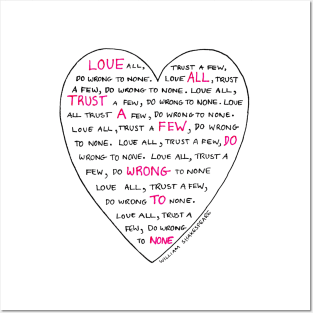 LOVE ALL, TRUST A FEW,
DO WRONG TO NONE. LOVE ALL, TRUST
A FEW, DO WRONG TO NONE. LOVE ALL,
TRUST A FEW, DO WRONG TO NONE. LOVE
ALL TRUST A FEW, DO WRONG TO NONE.
LOVE ALL, TRUST A FEW, DO WRONG
TO NONE. LOVE ALL, TRUST A FEW, DO
WRONG TO NONE. LOVE ALL, TRUST A
FEW, DO WRONG TO NONE
LOVE ALL, TRUST A FEW,
DO WRONG TO NONE.
LOVE ALL, TRUST A
FEW, DO WRONG
TO NONE
WILLIAM SHAKESPEARE